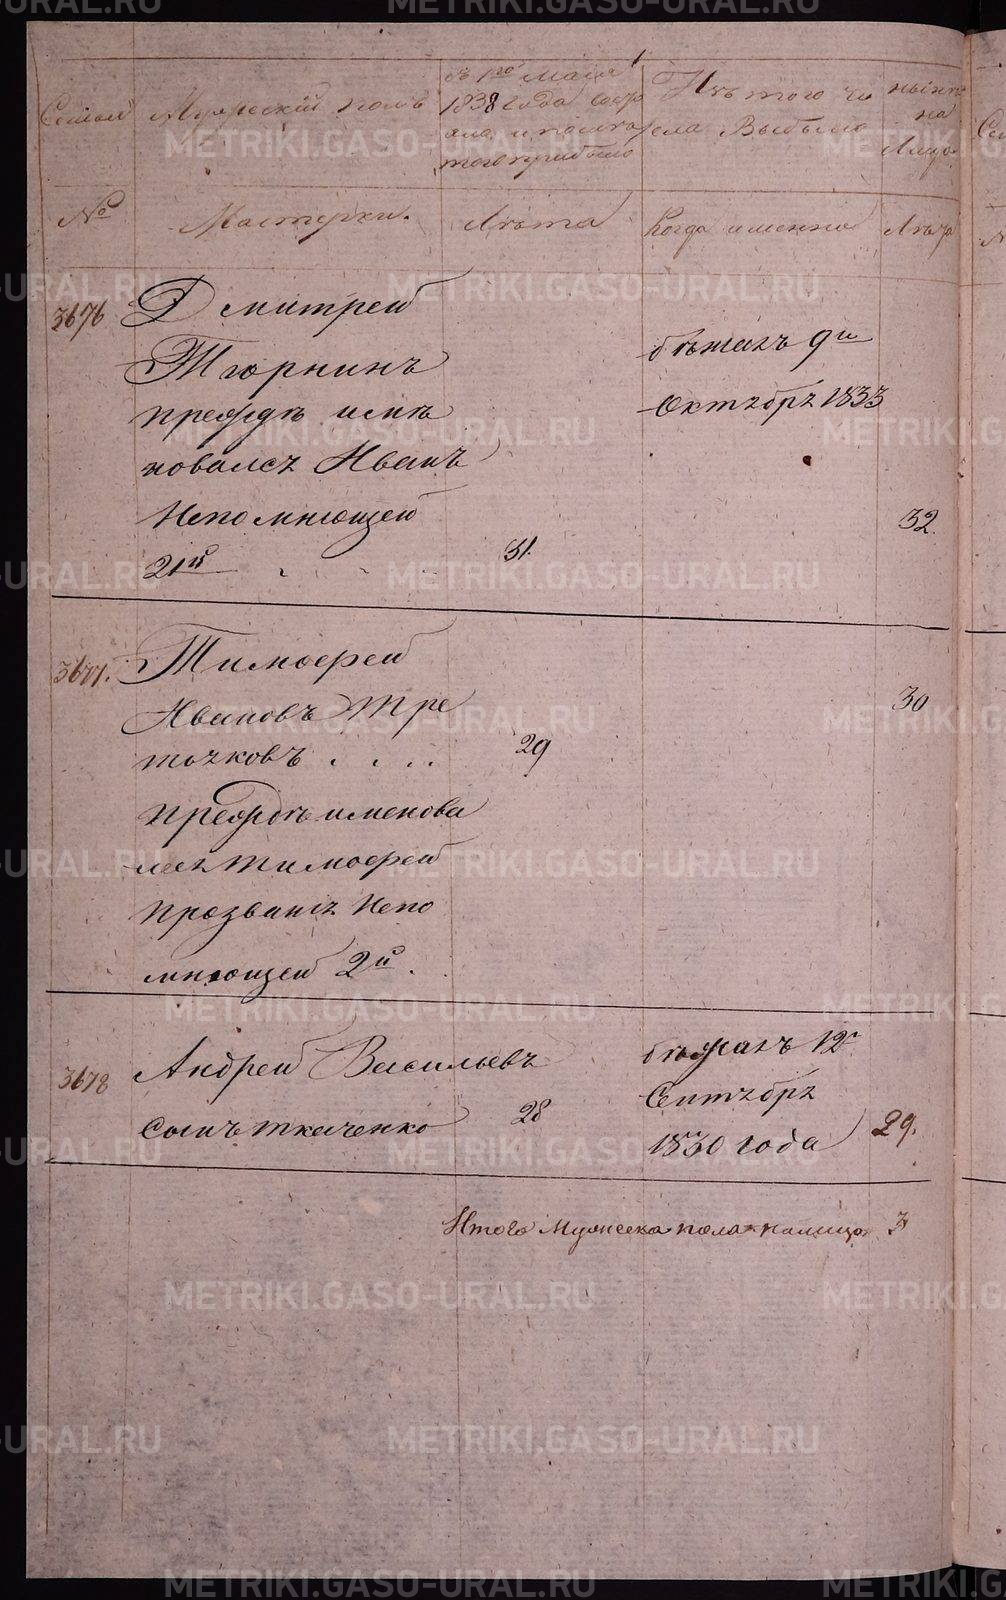 Семьи
Мужеский полъ
съ 1го Маiя
1838 года состо
яло, и после
того прибыло
Изъ того чи
сла Выбыло
ныне
на
Лицо
№
Мастерки.
Лѣта
Когда именно
Лѣта
3676
Дмитрей
Тюрнинъ
прежде име
новался Иванъ
Непомнющей
21й
31.
бѣжалъ 9го
Октября 1833
32.
3677.
Тимофей
Ивановъ Тре
точковъ . . . .
29
30
прежде именова
лся Тимофей
прозванiя Непо
мнющей 2й.
3678
Андрей Васильевъ
сынъ Ткаченко
28
бѣжалъ 12г
Сентября
1830 года
29.
Итого Мужеска пола налицо 3
METRIKI.GASO-URAL.RU